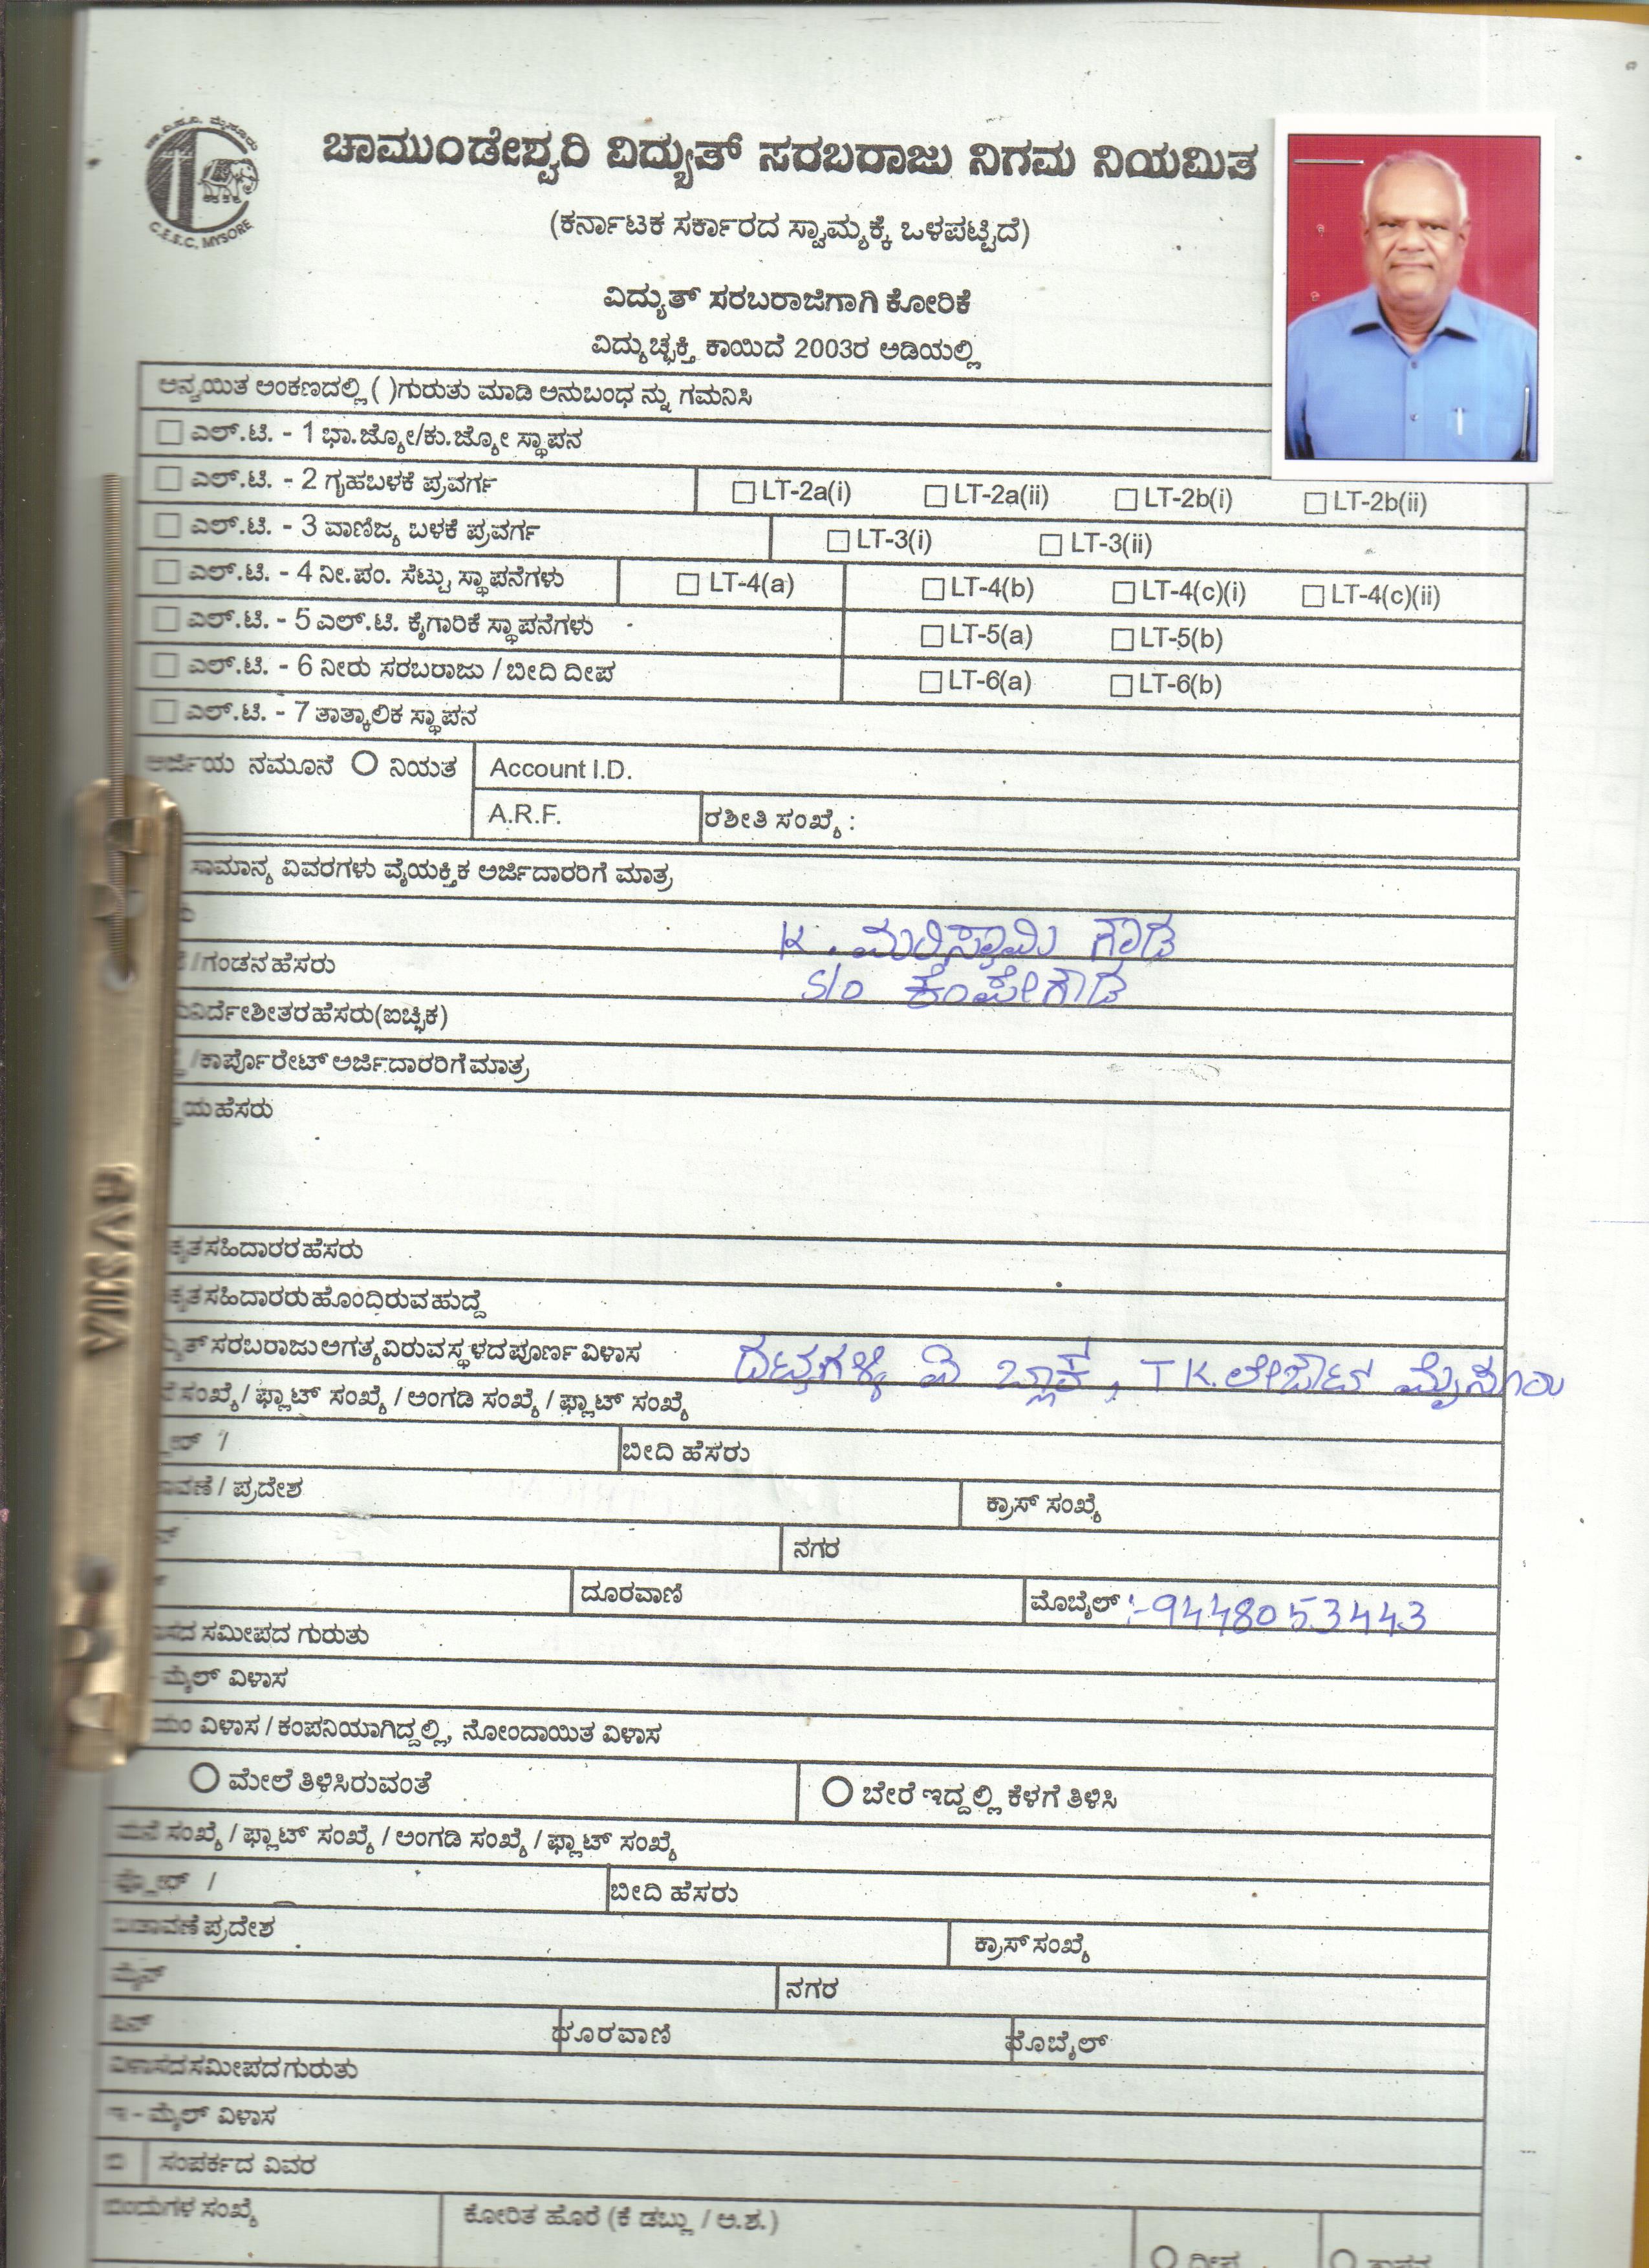 C.E.S.C, MYSORE
ಚಾಮುಂಡೇಶ್ವರಿ ವಿದ್ಯುತ್ ಸರಬರಾಜು ನಿಗಮ ನಿಯಮಿತ
(ಕರ್ನಾಟಕ ಸರ್ಕಾರದ ಸ್ವಾಮ್ಯಕ್ಕೆ ಒಳಪಟ್ಟಿದೆ)
ವಿದ್ಯುತ್ ಸರಬರಾಜಿಗಾಗಿ ಕೋರಿಕೆ
ವಿದ್ಯುಚ್ಛಕ್ತಿ ಕಾಯಿದೆ 2003ರ ಅಡಿಯಲ್ಲಿ
ಅನ್ವಯಿತ ಅಂಕಣದಲ್ಲಿ ( )ಗುರುತು ಮಾಡಿ ಅನುಬಂಧ ನ್ನು ಗಮನಿಸಿ
ಎಲ್.ಟಿ. - 1 ಭಾ.ಜ್ಯೋ/ಕು.ಜ್ಯೋ ಸ್ಥಾಪನ
ಎಲ್.ಟಿ. - 2 ಗೃಹಬಳಕೆ ಪ್ರವರ್ಗ LT-2a(i) LT-2a(ii) LT-2b(i) LT-2b(ii)
ಎಲ್.ಟಿ. - 3 ವಾಣಿಜ್ಯ ಬಳಕೆ ಪ್ರವರ್ಗ LT-3(i) LT-3(ii)
ಎಲ್.ಟಿ. - 4 ನೀ.ಪಂ. ಸೆಟ್ಟು ಸ್ಥಾಪನೆಗಳು LT-4(a) LT-4(b) LT-4(c)(i) LT-4(c)(ii)
ಎಲ್.ಟಿ. - 5 ಎಲ್.ಟಿ. ಕೈಗಾರಿಕೆ ಸ್ಥಾಪನೆಗಳು LT-5(a) LT-5(b)
ಎಲ್.ಟಿ. - 6 ನೀರು ಸರಬರಾಜು / ಬೀದಿ ದೀಪ LT-6(a) LT-6(b)
ಎಲ್.ಟಿ. - 7 ತಾತ್ಕಾಲಿಕ ಸ್ಥಾಪನ
ಅರ್ಜಿಯ ನಮೂನೆ ನಿಯತ Account I.D.
A.R.F. ರಶೀತಿ ಸಂಖ್ಯೆ :
ಸಾಮಾನ್ಯ ವಿವರಗಳು ವೈಯಕ್ತಿಕ ಅರ್ಜಿದಾರರಿಗೆ ಮಾತ್ರ
K. ಮಲ್ಲಿಸ್ವಾಮಿ ಗೌಡ
/ಗಂಡನ ಹೆಸರು S/o ಕೆಂಪೇಗೌಡ
ನಿರ್ದೇಶಿತರ ಹೆಸರು(ಐಚ್ಛಿಕ)
/ಕಾರ್ಪೊರೇಟ್ ಅರ್ಜಿದಾರರಿಗೆ ಮಾತ್ರ
ಯ ಹೆಸರು
ಕೃತ ಸಹಿದಾರರ ಹೆಸರು
ಕೃತ ಸಹಿದಾರರು ಹೊಂದಿರುವ ಹುದ್ದೆ
ಸರಬರಾಜು ಅಗತ್ಯವಿರುವ ಸ್ಥಳದ ಪೂರ್ಣ ವಿಳಾಸ ದಟ್ಟಗಳ್ಳಿ ವಿ ಬ್ಲಾಕ್, T K. ಲೇಔಟ್ ಮೈಸೂರು
ಸಂಖ್ಯೆ / ಫ್ಲಾಟ್ ಸಂಖ್ಯೆ / ಅಂಗಡಿ ಸಂಖ್ಯೆ / ಫ್ಲಾಟ್ ಸಂಖ್ಯೆ
/ ಬೀದಿ ಹೆಸರು
ವಣೆ / ಪ್ರದೇಶ ಕ್ರಾಸ್ ಸಂಖ್ಯೆ
ನಗರ
ದೂರವಾಣಿ ಮೊಬೈಲ್ :-9448053443
ಸಮೀಪದ ಗುರುತು
- ಮೈಲ್ ವಿಳಾಸ
ವಿಳಾಸ / ಕಂಪನಿಯಾಗಿದ್ದಲ್ಲಿ, ನೋಂದಾಯಿತ ವಿಳಾಸ
ಮೇಲೆ ತಿಳಿಸಿರುವಂತೆ ಬೇರೆ ಇದ್ದಲ್ಲಿ ಕೆಳಗೆ ತಿಳಿಸಿ
ಮನೆ ಸಂಖ್ಯೆ / ಫ್ಲಾಟ್ ಸಂಖ್ಯೆ / ಅಂಗಡಿ ಸಂಖ್ಯೆ / ಫ್ಲಾಟ್ ಸಂಖ್ಯೆ
ಫ್ಲೋರ್ / ಬೀದಿ ಹೆಸರು
ಬಡಾವಣೆ ಪ್ರದೇಶ ಕ್ರಾಸ್ ಸಂಖ್ಯೆ
ಮೈನ್ ನಗರ
ಪಿನ್ ದೂರವಾಣಿ ಮೊಬೈಲ್
ವಿಳಾಸದ ಸಮೀಪದ ಗುರುತು
ಇ - ಮೈಲ್ ವಿಳಾಸ
ಬಿ ಸಂಪರ್ಕದ ವಿವರ
ಬಿಂದುಗಳ ಸಂಖ್ಯೆ ಕೋರಿತ ಹೊರೆ (ಕೆ ಡಬ್ಲ್ಯು / ಅ.ಶ.)